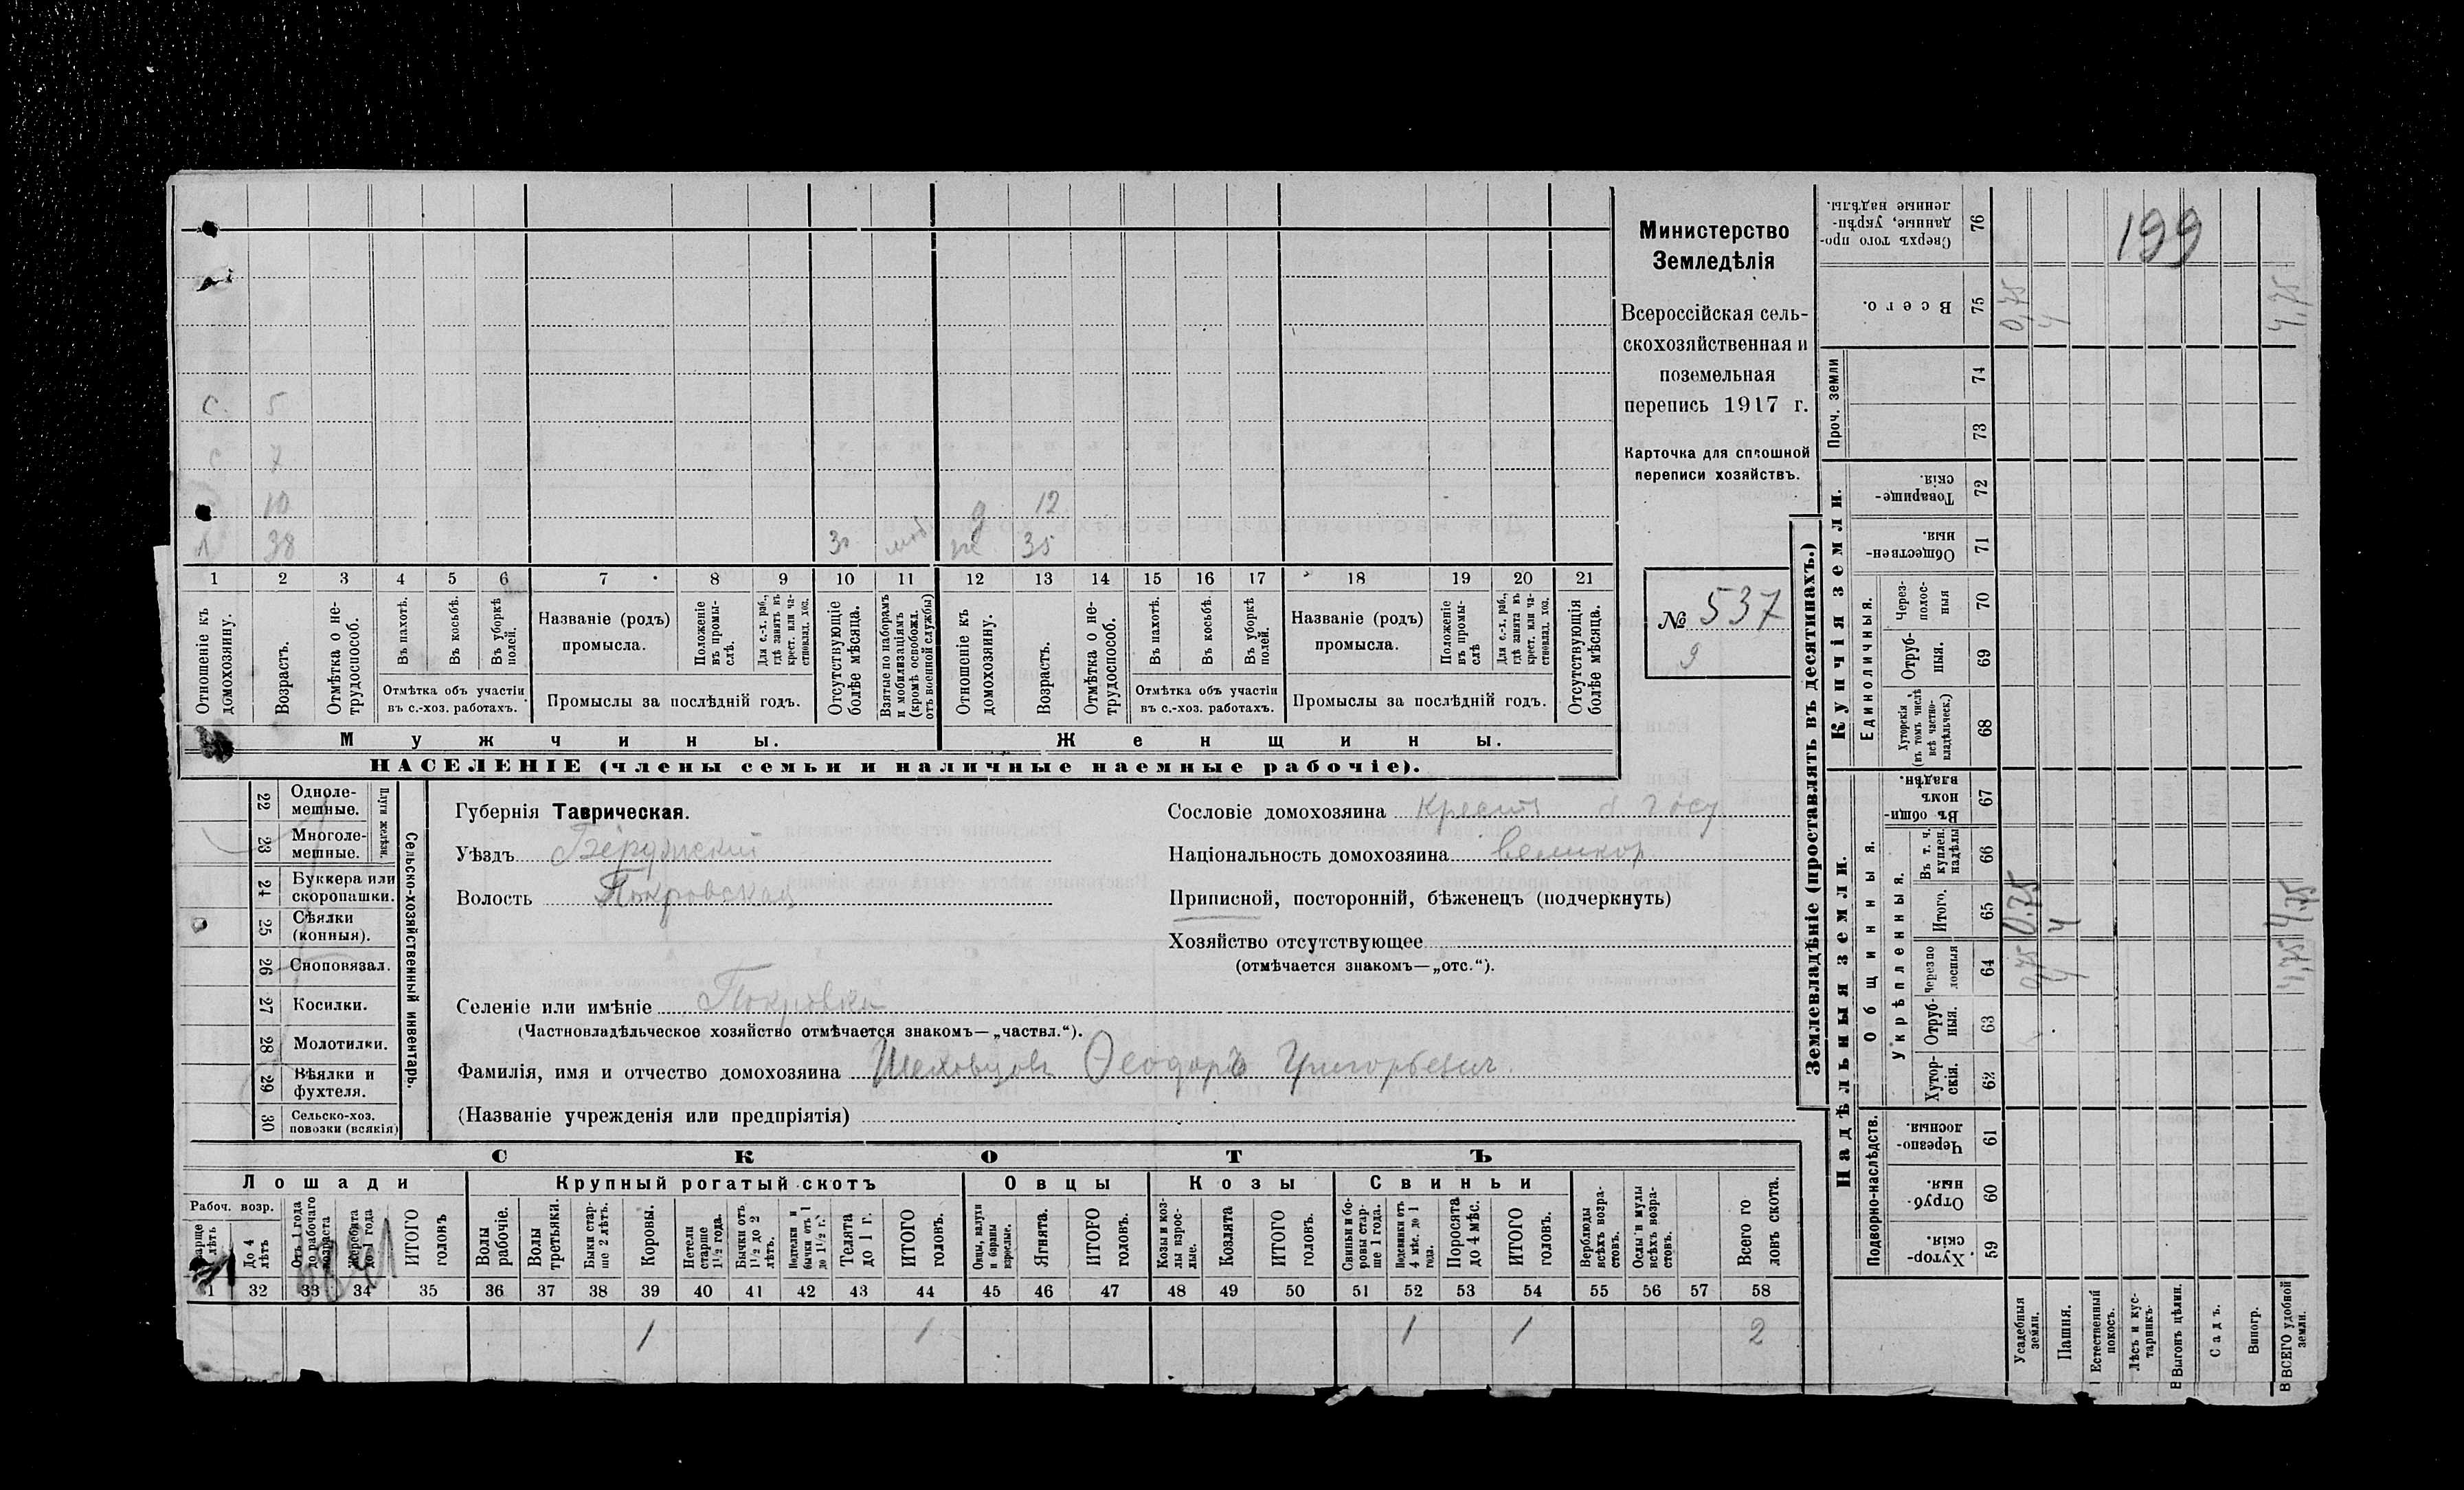 Министерство
Земледѣлія
Всероссійская сель-
скохозяйственная и
поземельная
перепись 1917 г.
Карточка для сплошной
переписи хозяйствъ.
№ 537
9
199
С. 5
С 7
10
38
д 12
ж 35
1 2 3 4 5 6 7 8 9 10 11 12 13 14 15 16 17 18 19 20 21
Отношеніе къ домохозяину.
Возрастъ.
Отмѣтка о не-трудоспособ.
Въ пахотѣ.
Въ косьбѣ.
Въ уборкѣ полей.
Отмѣтка объ участіи
въ с.-хоз. работахъ.
Названіе (родъ)
промысла.
Положеніе въ промы-слѣ.
Для с.-х. раб., гдѣ занятъ въ крест. или ча-стновлад. хоз.
Промыслы за послѣдній годъ.
Отсутствующіе болѣе мѣсяца.
Взятые по наборамъ и мобилизаціямъ (кромѣ освобожд. отъ военной службы)
Отношеніе къ домохозяину.
Возрастъ.
Отмѣтка о не-трудоспособ.
Въ пахотѣ.
Въ косьбѣ.
Въ уборкѣ полей.
Отмѣтка объ участіи
въ с.-хоз. работахъ.
Названіе (родъ)
промысла.
Положеніе въ промы-слѣ
Для с.-х. раб., гдѣ занята въ крест. или ча-стновлад. хоз.
Промыслы за послѣдній годъ.
Отсутствующія болѣе мѣсяца.
Мужчины.
Женщины.
НАСЕЛЕНІЕ (члены семьи и наличные наемные рабочіе).
Сельско-хозяйственный инвентарь.
Плуги желѣзн.
22 Одноле-мешные.
23 Многоле-мешные.
24 Буккера или скоропашки.
25 Сѣялки (конныя).
26 Сноповязал.
27 Косилки.
28 Молотилки.
29 Вѣялки и фухтеля.
30 Сельско-хоз. повозки (всякія)
Губернія Таврическая.
Уѣздъ
Волость Покровская
Селеніе или имѣніе Покровка
(Частновладѣльческое хозяйство отмѣчается знакомъ—„частвл.“).
Фамилія, имя и отчество домохозяина Шеховцовъ Ѳеодоръ Григорьевич
(Названіе учрежденія или предпріятія)
Сословіе домохозяина Крест б Госу
Національность домохозяина великор.
Приписной, посторонній, бѣженецъ (подчеркнуть)
Хозяйство отсутствующее
(отмѣчается знакомъ—„отс.“).
СКОТЪ
Лошади
Рабоч. возр.
До 4 лѣтъ
Отъ 1 года до рабочаго возраста
Жеребята до 1 года
ИТОГО головъ
Крупный рогатый скотъ
Волы рабочіе.
Волы третьяки.
Быки стар-ше 2 лѣтъ.
Коровы.
Нетели старше 1½ года.
Бычки отъ 1½ до 2 лѣтъ.
Телята до 1 г.
ИТОГО головъ.
Овцы
Овцы, валухи и бараны взрослые.
Ягнята.
ИТОГО головъ.
Козы
Козы и коз-лы взрос-лые.
Козлята
ИТОГО головъ.
Свиньи
Свиньи и бо-ровы стар-ше 1 года.
Подсвинки отъ 4 мѣс. до 1 года.
Поросята до 4 мѣс.
ИТОГО головъ.
Верблюды всѣхъ возра-стовъ.
Ослы и мулы всѣхъ возра-стовъ.
Всего го ловъ скота.
32 33 34 35 36 37 38 39 40 41 42 43 44 45 46 47 48 49 50 51 52 53 54 55 56 57 58
1 1 1 1 2
Землевладѣніе (проставлять въ десятинахъ.)
Надѣльныя земли.
Подворно-наслѣдств.
Хутор-скія. 59
Отруб-ныя. 60
Черезпо-лосныя. 61
Общинныя.
Укрѣпленныя.
Хутор-скія. 62
Отруб-ныя. 63
Черезпо лосныя 64 0,75 4 4,75
Итого. 65 0,75 4 4,75
Въ т. ч. куплен. надѣлы 66
Въ общин-номъ владѣн. 67
Купчія земли.
Единоличныя.
Хуторскія (въ томъ числѣ всѣ частно-владѣльческ.) 68
Отруб-ныя. 69
Через-полос-ныя 70
Обществен-ныя. 71
Товарище-скія. 72
Проч. земли
73 74
Всего. 75 0,75 4 4,75
Сверхъ того про-данные, укрѣп-ленные надѣлы. 76
Усадебныя земли.
Пашня.
Естественный покосъ.
Лѣсъ и кус-тарникъ.
Выгонъ цѣлин.
Садъ.
Виногр.
ВСЕГО удобной земли.